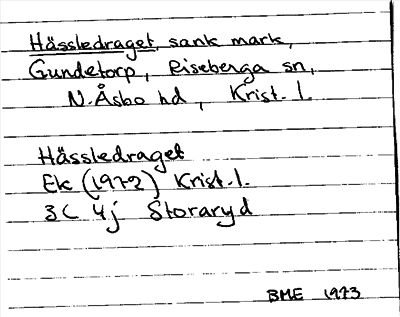 Hässledraget, sank mark,
Gundetorp, Riseberga sn,
N. Åsbo hd, Krist. l.
Hässledraget
Ek (1972) Krist. l.
3C 4j Storaryd
BME 1973